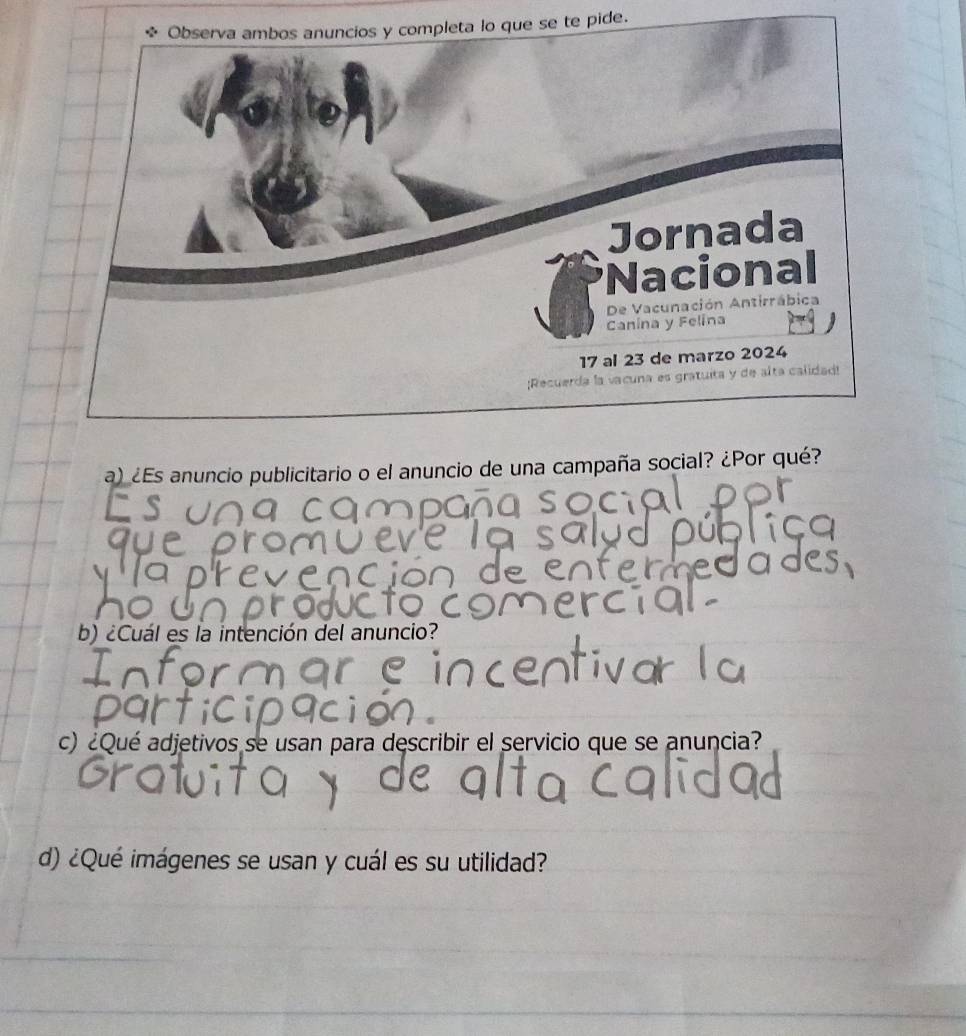 ❖ Observa ambos anuncios y completa lo que se te pide.
Jornada
Nacional
De Vacunación Antirrábica
Canina y Felina
17 al 23 de marzo 2024
¡Recuerda la vacuna es gratuita y de alta calidad!
a) ¿Es anuncio publicitario o el anuncio de una campaña social? ¿Por qué?
Es una campaña social por
que promueve la salud pública
y la prevención de enfermedades,
no un producto comercial.
b) ¿Cuál es la intención del anuncio?
Informar e incentivar la
participación.
c) ¿Qué adjetivos se usan para describir el servicio que se anuncia?
Gratuita y de alta calidad
d) ¿Qué imágenes se usan y cuál es su utilidad?